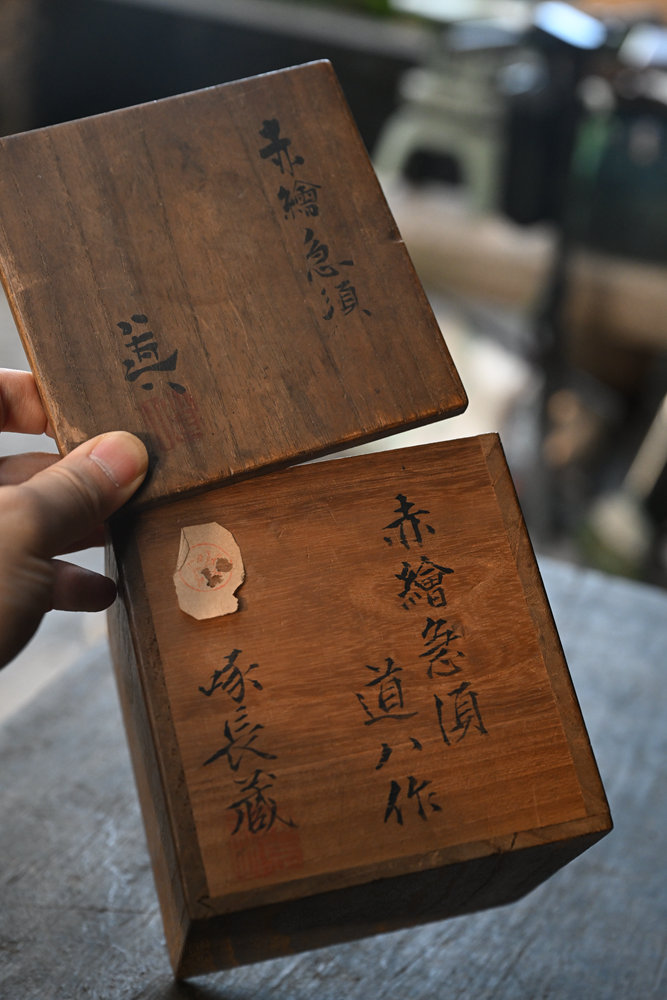 赤繪急須
道八
赤繪急須
道八作
啄長蔵